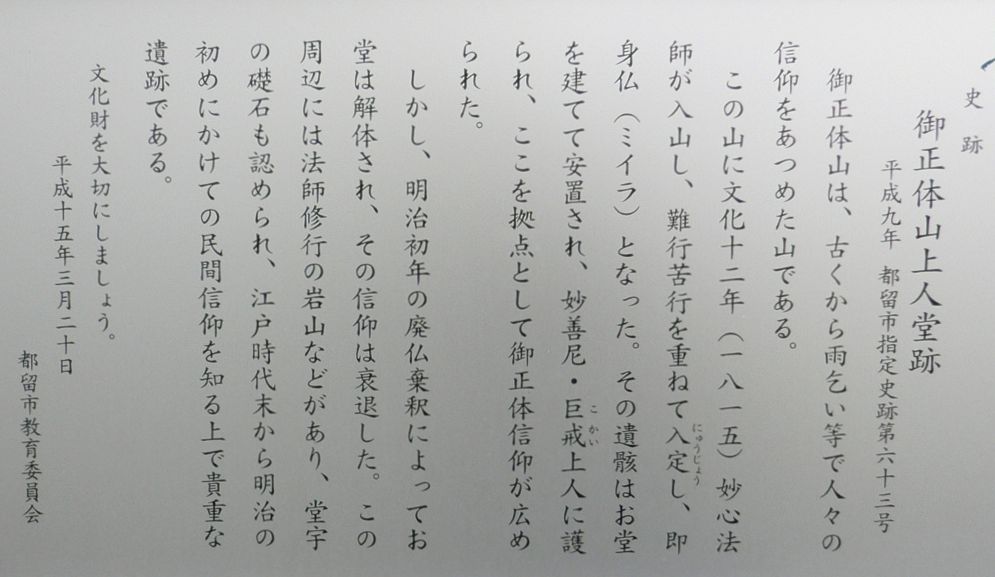 史跡
御正体山上人堂跡
平成九年 都留市指定史跡第六十三号
御正体山は、古くから雨乞い等で人々の
信仰をあつめた山である。
この山に文化十二年（一八一五）妙心法
師が入山し、難行苦行を重ねて入定し、即
にゅうじょう
身仏（ミイラ）となった。その遺骸はお堂
を建てて安置され、妙善尼・巨戒上人に護
こかい
られ、ここを拠点として御正体信仰が広め
られた。
しかし、明治初年の廃仏棄釈によってお
堂は解体され、その信仰は衰退した。この
周辺には法師修行の岩山などがあり、堂宇
の礎石も認められ、江戸時代末から明治の
初めにかけての民間信仰を知る上で貴重な
遺跡である。
文化財を大切にしましょう。
平成十五年三月二十日
都留市教育委員会